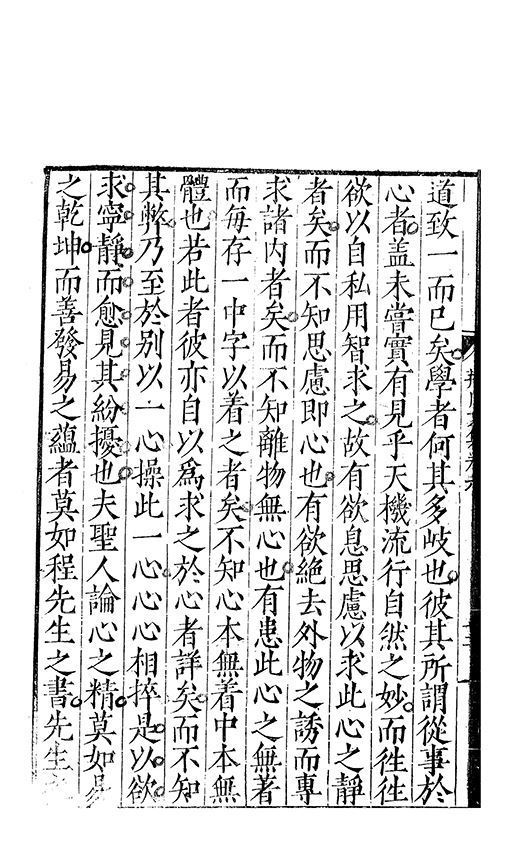 道致一而已矣學者何其多岐也彼其所謂從事於
心者盖未嘗實有見乎天機流行自然之妙而徃徃
欲以自私用智求之故有欲息思慮以求此心之靜
者矣而不知思慮即心也有欲絶去外物之誘而專
求諸内者矣而不知離物無心也有患此心之無著
而每存一中字以着之者矣不知心本無着中本無
體也若此者彼亦自以爲求之於心者詳矣而不知
其弊乃至於别以一心操此一心心心相捽是以欲
求寧靜而愈見其紛擾也夫聖人論心之精莫如易
之乾坤而善發易之蘊者莫如程先生之書先生